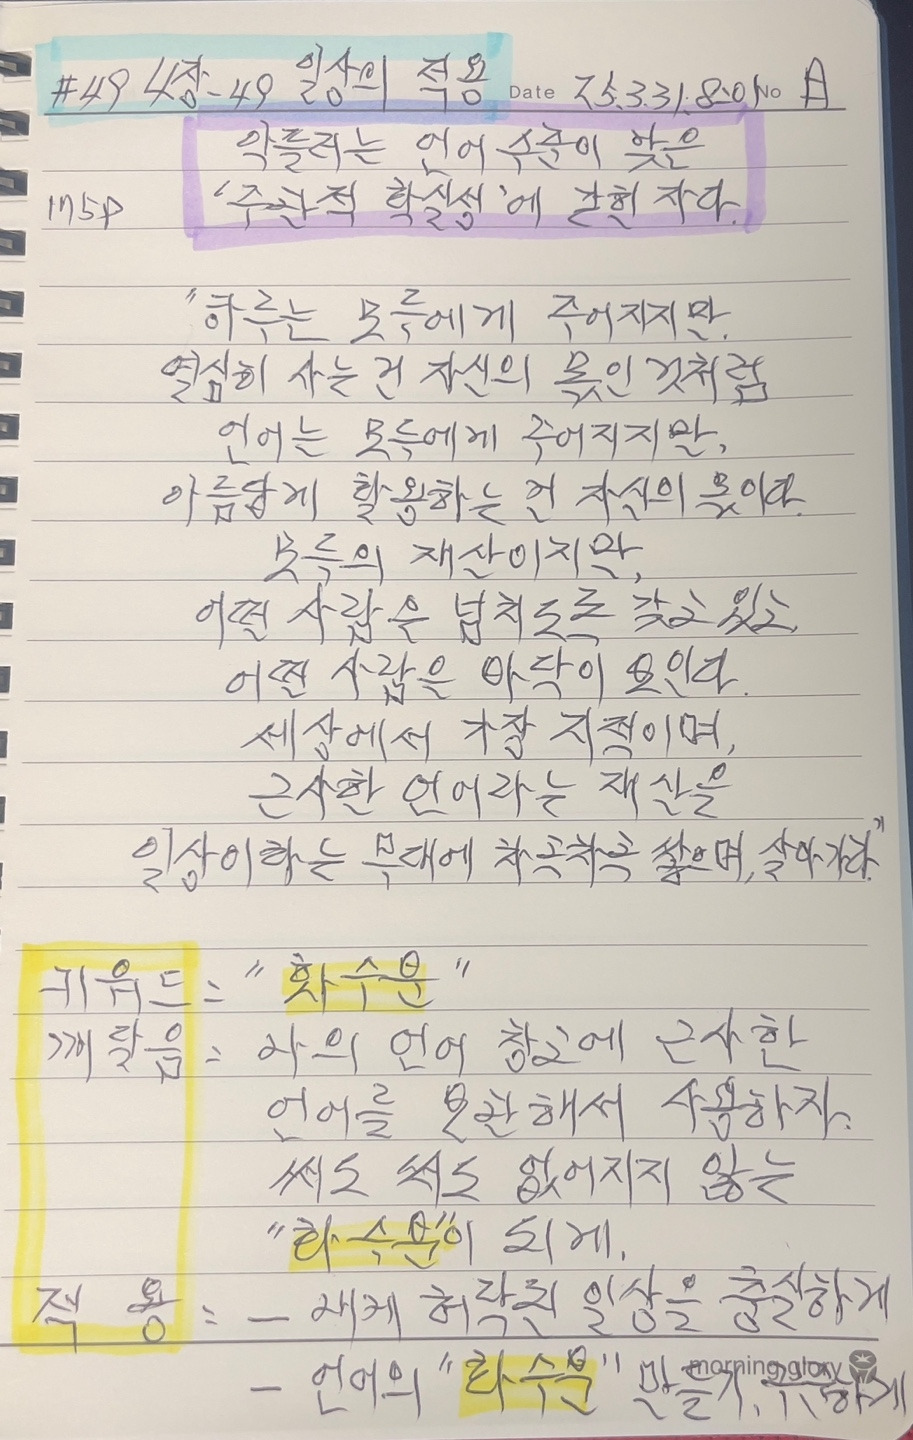 #49 4장-49 일상의 적용 Date 25.3.31.8:01 No A
악플러는 언어 수준이 낮은
175p '주관적 확실성'에 갇힌 자다.
"하루는 모두에게 주어지지만.
열심히 사는 건 자신의 몫인 것처럼
언어는 모두에게 주어지지만,
아름답게 활용하는 건 자신의 몫이다.
모두의 재산이지만,
어떤 사람은 넘치도록 갖고 있고,
어떤 사람은 바닥이 보인다.
세상에서 가장 지적이며,
근사한 언어라는 재산을
일상이라는 무대에 차곡차곡 쌓으며, 살아가라."
키워드 = "화수분"
깨달음 = 나의 언어 창고에 근사한
언어를 보관해서 사용하자.
써도 써도 없어지지 않는
"화수분"이 되게.
적 용 = - 내게 허락된 일상을 충실하게
- 언어의 "화수분" 만들기,
morning glory